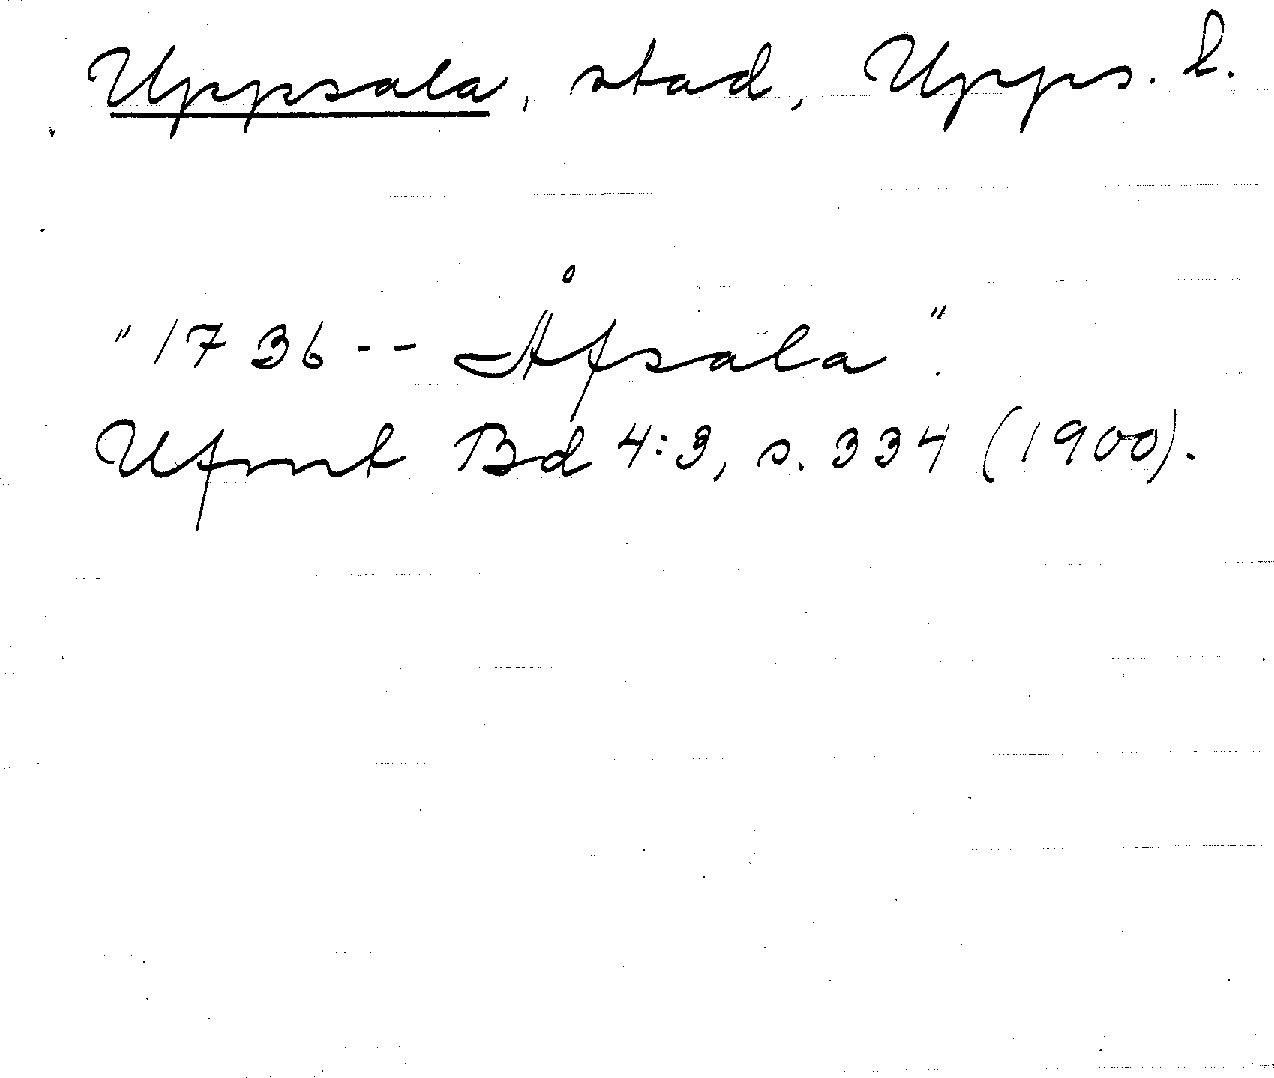 Uppsala, stad, Upps. l.
"1736 -- Åfsala".
Ufmt Bd 4:3, s. 334 (1900).